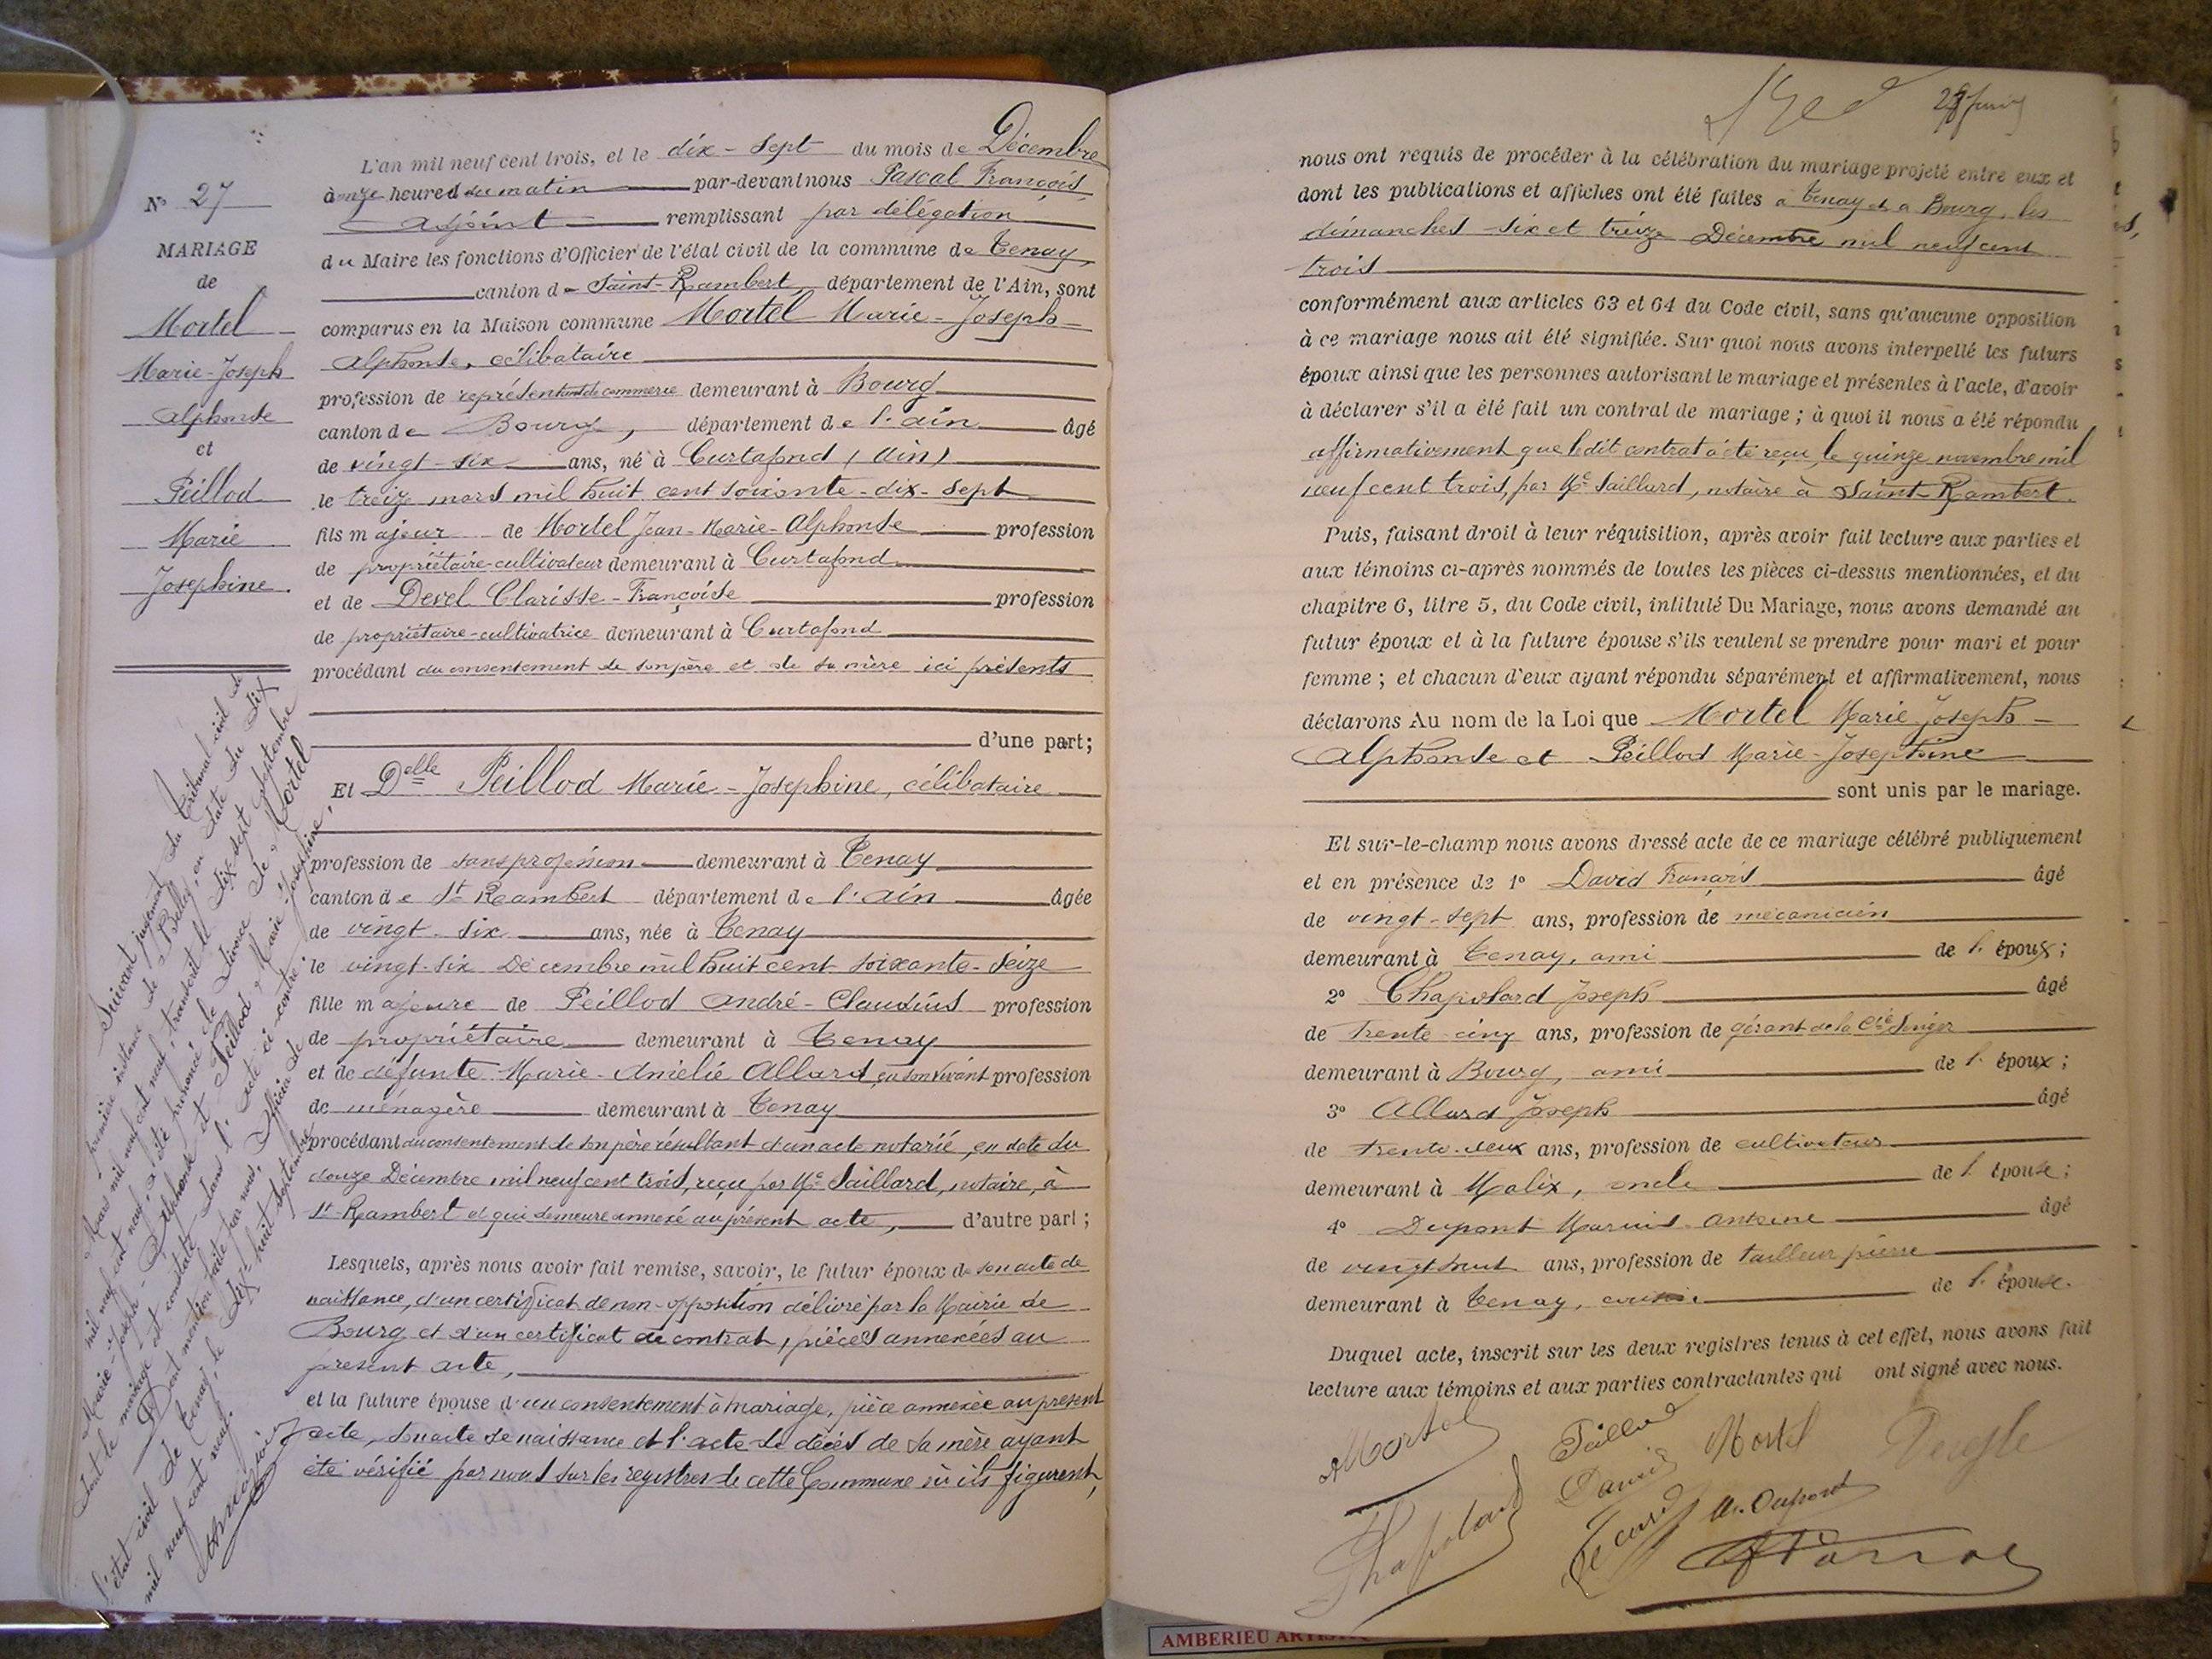 N° 27
MARIAGE
de
Mortel
Marie-Joseph
Alphonse
et
Peillod
Marie
Josephine.
L'an mil neuf cent trois, et le dix-sept du mois de Décembre
à onze heures du matin par-devant nous Pascal François
Adjoint remplissant par délégation
du Maire les fonctions d'Officier de l'état civil de la commune de Tenay,
canton de Saint-Rambert, département de l'Ain, sont
comparus en la Maison commune Mortel Marie-Joseph-
Alphonse, célibataire
profession de représentant de commerce demeurant à Bourg
canton de Bourg, département de l'Ain âgé
de vingt-six ans, né à Curtafond (Ain)
le treize mars mil huit cent soixante-dix-sept
fils majeur de Mortel Jean-Marie-Alphonse profession
de propriétaire-cultivateur demeurant à Curtafond
et de Devel Clarisse-Françoise profession
de propriétaire-cultivatrice demeurant à Curtafond
procédant du consentement de son père et de sa mère ici présents
d'une part;
Et Delle Peillod Marie-Josephine, célibataire
profession de sans profession demeurant à Tenay
canton de St Rambert département de l'Ain âgée
de vingt-six ans, née à Tenay
le vingt-six Décembre mil huit cent soixante-seize
fille majeure de Peillod André-Claudius profession
de propriétaire demeurant à Tenay
et de défunte Marie-Amélie Allard, en son vivant profession
de ménagère demeurant à Tenay
procédant du consentement de son père résultant d'un acte notarié, en date du
douze Décembre mil neuf cent trois, reçu par Me Saillard, notaire, à
St Rambert et qui demeure annexé au présent acte, d'autre part;
Lesquels, après nous avoir fait remise, savoir, le futur époux de son acte de
naissance, d'un certificat de non-opposition délivré par la Mairie de
Bourg et d'un certificat de contrat, pièces annexées au
présent acte,
et la future épouse d'un consentement à mariage, pièce annexée au présent
acte, son acte de naissance et l'acte de décès de sa mère ayant
été vérifié par nous sur les registres de cette Commune où ils figurent,
Suivant jugement du Tribunal civil de
première instance de Belley, en date du dix
Mars mil neuf cent neuf, transcrit le dix-sept septembre
mil neuf cent neuf, a été prononcé le divorce de "Mortel
Marie-Joseph-Alphonse et Peillod Marie-Josephine,
dont le mariage est constaté dans l'acte ci-contre.
Dont mention faite par nous, Officier de
l'état civil de Tenay, le dix huit septembre
mil neuf cent neuf.
nous ont requis de procéder à la célébration du mariage projeté entre eux et
dont les publications et affiches ont été faites à Tenay et à Bourg, les
dimanches six et treize Décembre mil neuf cent
trois
conformément aux articles 63 et 64 du Code civil, sans qu'aucune opposition
à ce mariage nous ait été signifiée. Sur quoi nous avons interpellé les futurs
époux ainsi que les personnes autorisant le mariage et présentes à l'acte, d'avoir
à déclarer s'il a été fait un contrat de mariage; à quoi il nous a été répondu
affirmativement que ledit contrat a été reçu, le quinze novembre mil
neuf cent trois, par Me Saillard, notaire à Saint-Rambert.
Puis, faisant droit à leur réquisition, après avoir fait lecture aux parties et
aux témoins ci-après nommés de toutes les pièces ci-dessus mentionnées, et du
chapitre 6, titre 5, du Code civil, intitulé Du Mariage, nous avons demandé au
futur époux et à la future épouse s'ils veulent se prendre pour mari et pour
femme; et chacun d'eux ayant répondu séparément et affirmativement, nous
déclarons Au nom de la Loi que Mortel Marie Joseph-
Alphonse et Peillod Marie-Josephine
sont unis par le mariage.
Et sur-le-champ nous avons dressé acte de ce mariage célébré publiquement
et en présence de 1° David François âgé
de vingt-sept ans, profession de mécanicien
demeurant à Tenay, ami de l'époux;
2° Chapolard Joseph âgé
de trente-cinq ans, profession de gérant de la Cie Singer
demeurant à Bourg, ami de l'époux;
3° Allard Joseph âgé
de trente-deux ans, profession de cultivateur
demeurant à Malix, oncle de l'épouse;
4° Dupont Marius-Antoine âgé
de vingt huit ans, profession de tailleur pierre
demeurant à Tenay, cousin de l'épouse.
Duquel acte, inscrit sur les deux registres tenus à cet effet, nous avons fait
lecture aux témoins et aux parties contractantes qui ont signé avec nous.
Mortel Peillod Mortel
Chapolard David M. Dupont
AMBERIEU